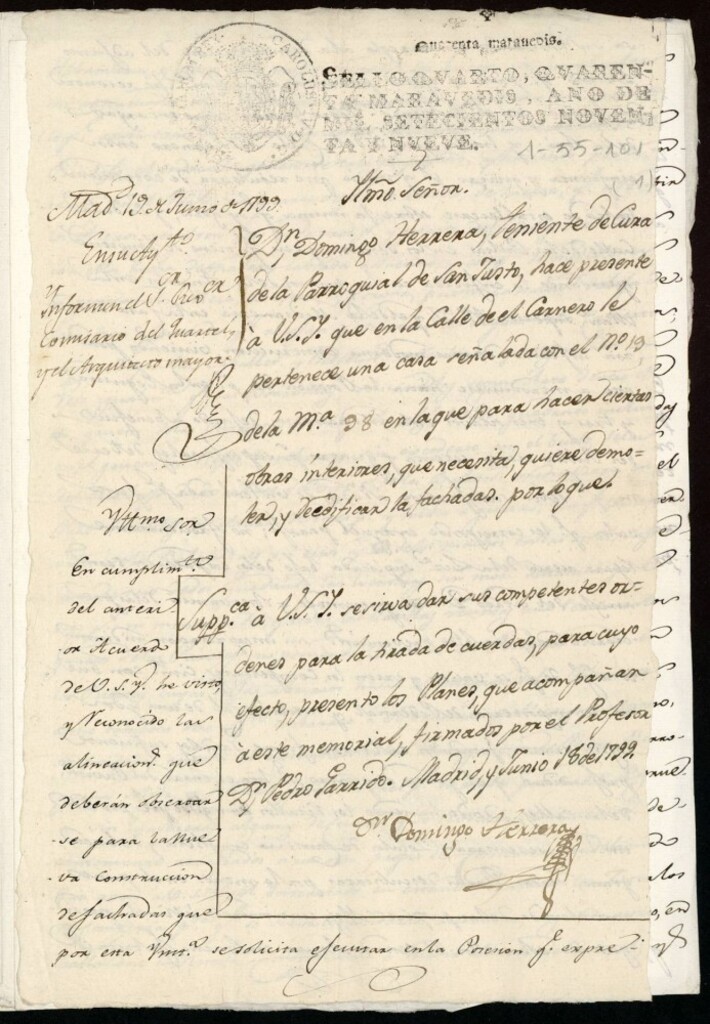 Quarenta maravedis.
SELLO QVARTO, QVAREN-
TA MARAVEDIS, AÑO DE
MIL SETECIENTOS NOVEN-
TA Y NVEVE.
1-55-101
(1)
Yltmo Señor.
Mad.d 19 de Junio de 1799
En su Ay.to
Informen el S.or
Comisario del Quartel,
y el Arquitecto mayor.
Dn Domingo Herrera, teniente de Cura
de la Parroquial de San Justo, hace presente
à V.S.Y. que en la Calle de el Carnero le
pertenece una casa señalada con el Nº 13
de la M.a 98 en la que para hacer ciertas
obras interiores, que necesita, quiere demo-
ler, y reedificar la fachadas. por lo que
Supp.ca à V.S.Y. se sirva dar sus competentes or-
denes para la tirada de cuerdas, para cuyo
efecto, presento los Planes, que acompañan
à este memorial, firmados por el Profesor
Dn Pedro Garrido. Madrid, y Junio 18 de 1799.
Dn Domingo Herrera
Yltmo Sor
En cumplim.to
del anteri-
-or Acuerdo
de V.S.Y. he visto,
y reconocido las
alineacion.s que
deberán observar
-se para la nue
va construccion
de fachadas que
por esta Ynst.a se solicita ejecutar en la Posesion q.e expre-